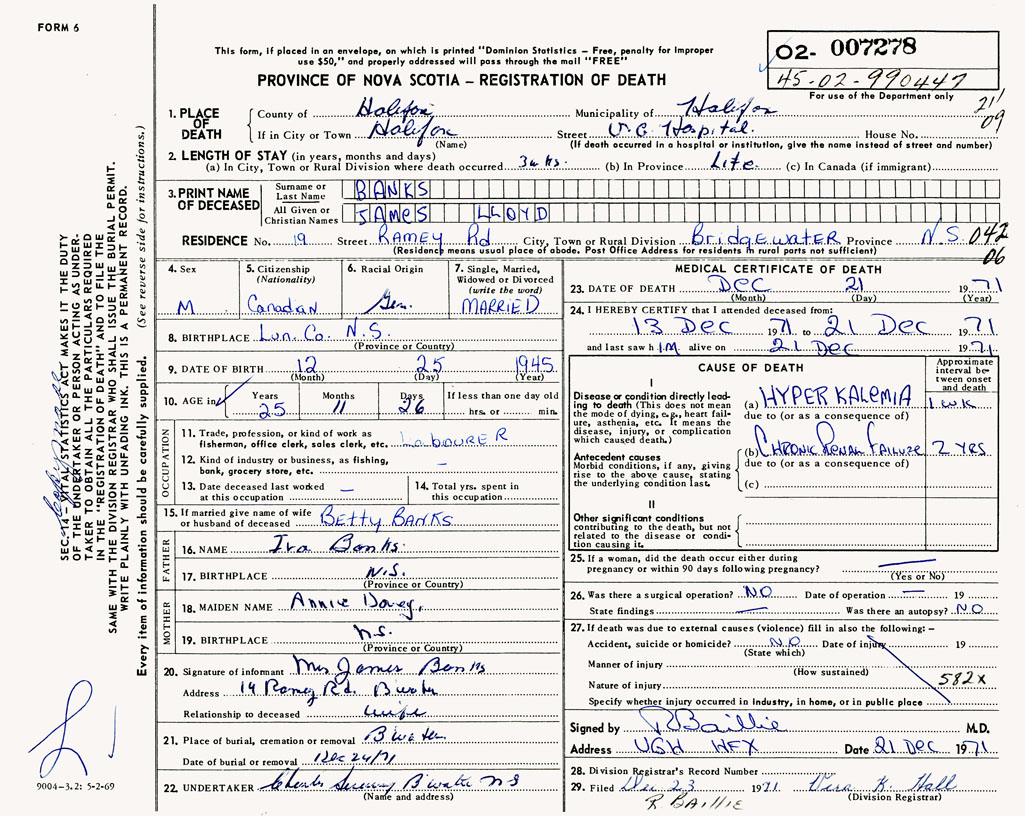 FORM 6
This form, if placed in an envelope, on which is printed "Dominion Statistics – Free, penalty for improper
use $50," and properly addressed will pass through the mail "FREE"
PROVINCE OF NOVA SCOTIA – REGISTRATION OF DEATH
02- 007278
45-02-990447
For use of the Department only
21
09
1. PLACE OF DEATH
County of Halifax Municipality of Halifax
If in City or Town Halifax Street V.G. Hospital. House No.
(Name) (If death occurred in a hospital or institution, give the name instead of street and number)
2. LENGTH OF STAY (in years, months and days)
(a) In City, Town or Rural Division where death occurred 3 wks. (b) In Province Life. (c) In Canada (if immigrant)
3. PRINT NAME OF DECEASED
Surname or Last Name BANKS
All Given or Christian Names JAMES LLOYD
RESIDENCE No. 19 Street RAMEY Rd City, Town or Rural Division BridgEWATER Province N.S. 042
06
(Residence means usual place of abode. Post Office Address for residents in rural parts not sufficient)
4. Sex
M
5. Citizenship
(Nationality)
Canadian
6. Racial Origin
Ger.
7. Single, Married,
Widowed or Divorced
(write the word)
MARRIED
8. BIRTHPLACE Lun. Co. N.S.
(Province or Country)
9. DATE OF BIRTH 12 25 1945
(Month) (Day) (Year)
10. AGE in
Years Months Days If less than one day old
25 11 26 hrs. or min.
OCCUPATION
11. Trade, profession, or kind of work as
fisherman, office clerk, sales clerk, etc. LabOURER
12. Kind of industry or business, as fishing,
bank, grocery store, etc. —
13. Date deceased last worked
at this occupation —
14. Total yrs. spent in
this occupation
15. If married give name of wife
or husband of deceased BETTY BANKS
FATHER
16. NAME Ira Banks.
17. BIRTHPLACE N.S.
(Province or Country)
MOTHER
18. MAIDEN NAME Annie Dovey,
19. BIRTHPLACE N.S.
(Province or Country)
20. Signature of informant Mrs James Banks
Address 19 Ramey Rd. B'water
Relationship to deceased wife
21. Place of burial, cremation or removal B'water
Date of burial or removal Dec 24/71
22. UNDERTAKER B'water NS
(Name and address)
MEDICAL CERTIFICATE OF DEATH
23. DATE OF DEATH DEC 21 1971
(Month) (Day) (Year)
24. I HEREBY CERTIFY that I attended deceased from:
13 Dec 1971 to 21 Dec 1971
and last saw h im alive on 21 Dec 1971
CAUSE OF DEATH
Approximate
interval be-
tween onset
and death
I
Disease or condition directly lead-
ing to death (This does not mean
the mode of dying, e.g., heart fail-
ure, asthenia, etc. It means the
disease, injury, or complication
which caused death.)
(a) HYPERKALEMIA 1 WK
due to (or as a consequence of)
Antecedent causes
Morbid conditions, if any, giving
rise to the above cause, stating
the underlying condition last.
(b) CHRONIC RENAL FAILURE 2 YRS
due to (or as a consequence of)
(c)
II
Other significant conditions
contributing to the death, but not
related to the disease or condi-
tion causing it.
25. If a woman, did the death occur either during
pregnancy or within 90 days following pregnancy? —
(Yes or No)
26. Was there a surgical operation? NO Date of operation — 19
State findings — Was there an autopsy? NO
27. If death was due to external causes (violence) fill in also the following: –
Accident, suicide or homicide? NO Date of injury 19
(State which)
Manner of injury
(How sustained)
Nature of injury 582X
Specify whether injury occurred in industry, in home, or in public place
Signed by R Baillie M.D.
Address VGH HFX Date 21 DEC 1971
28. Division Registrar's Record Number
29. Filed Dec 23 1971 Vera K. Hall
(Division Registrar)
R. BAILLIE
SEC. 14 – VITAL STATISTICS ACT MAKES IT THE DUTY
OF THE UNDERTAKER OR PERSON ACTING AS UNDER-
TAKER TO OBTAIN ALL THE PARTICULARS REQUIRED
IN THE "REGISTRATION OF DEATH" AND TO FILE THE
SAME WITH THE DIVISION REGISTRAR WHO SHALL ISSUE THE BURIAL PERMIT.
WRITE PLAINLY WITH UNFADING INK. THIS IS A PERMANENT RECORD.
Every item of information should be carefully supplied. (See reverse side for instructions.)
9004-3.2: 5-2-69